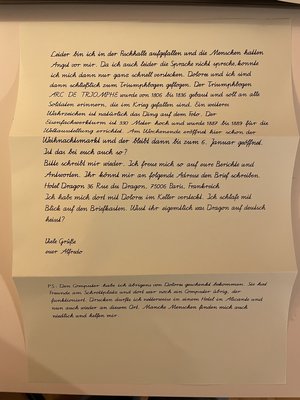 Leider bin ich in der Fischhalle aufgefallen und die Menschen hatten
Angst vor mir. Da ich auch leider die Sprache nicht spreche, konnte
ich mich dann nur ganz schnell verstecken. Dolores und ich sind
dann schließlich zum Triumphbogen geflogen. Der Triumphbogen
ARC DE TRIOMPHE wurde von 1806 bis 1836 gebaut und soll an alle
Soldaten erinnern, die im Krieg gefallen sind. Ein weiteres
Wahrzeichen ist natürlich das Ding auf dem Foto. Der
Eisenfachwerkturm ist 330 Meter hoch und wurde 1887 bis 1889 für die
Weltausstellung errichtet. Am Wochenende eröffnet hier schon der
Weihnachtsmarkt und der bleibt dann bis zum 6. Januar geöffnet.
Ist das bei euch auch so?
Bitte schreibt mir wieder. Ich freue mich so auf eure Berichte und
Antworten. Ihr könnt mir an folgende Adresse den Brief schreiben.
Hotel Dragon 36 Rue du Dragon, 75006 Paris, Frankreich
Ich habe mich dort mit Dolores im Keller versteckt. Ich schlafe mit
Blick auf den Briefkasten. Wisst ihr eigentlich was Dragon auf deutsch
heißt?
Viele Grüße
euer Alfredo
PS.: Den Computer habe ich übrigens von Dolores geschenkt bekommen. Sie hat
Freunde am Schrottplatz und dort war noch ein Computer übrig, der
funktioniert. Drucken durfte ich netterweise in einem Hotel in Alicante und
nun auch wieder an diesem Ort. Manche Menschen finden mich auch
niedlich und helfen mir.